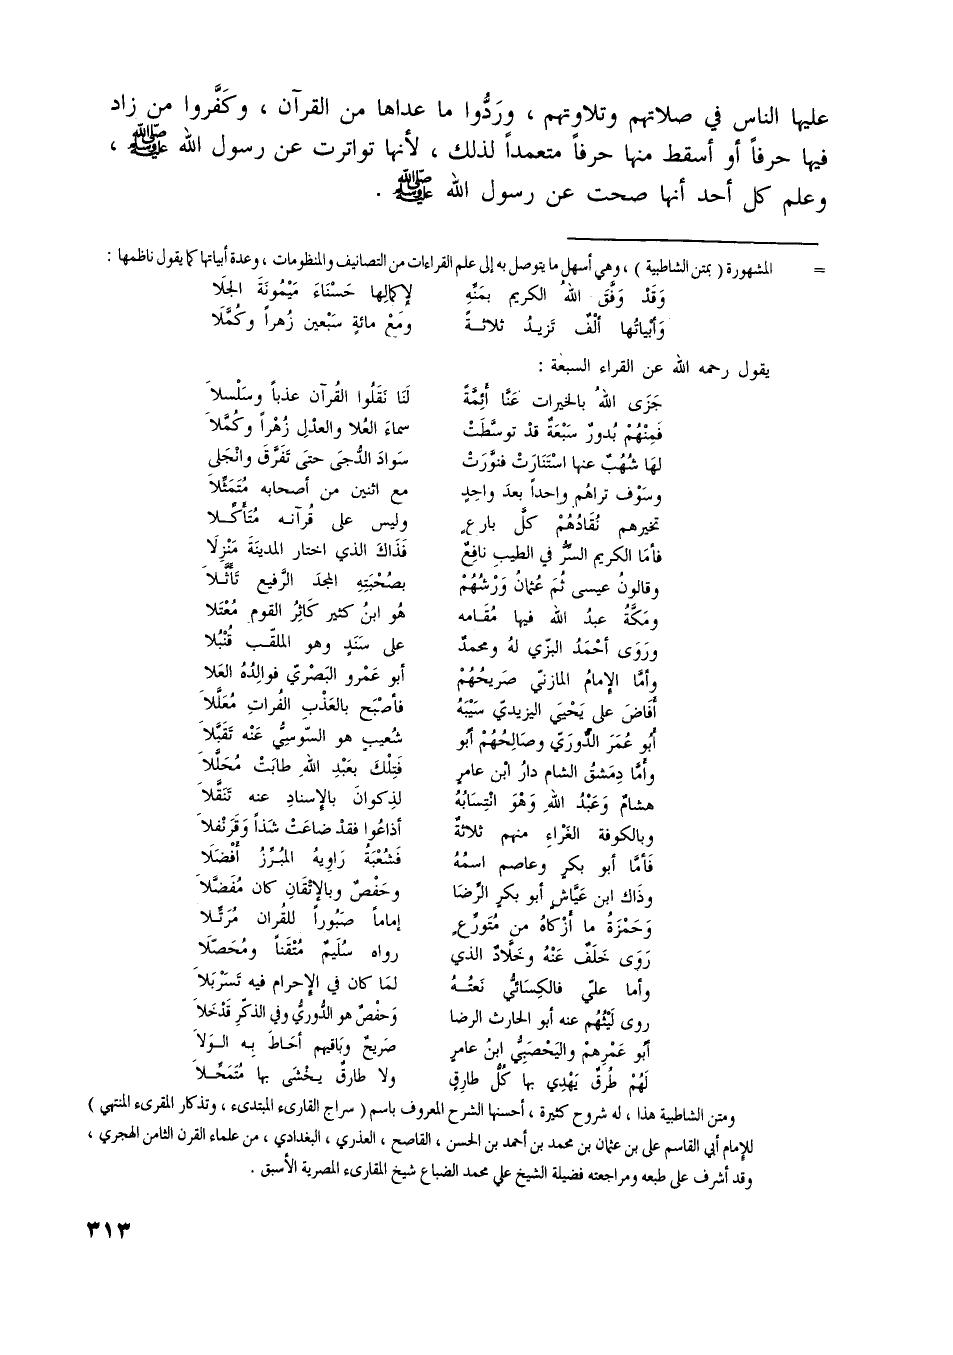 عليها الناس في صلاتهم وتلاوتهم ، ورَدُّوا ما عداها من القرآن ، وكَفَّروا من زاد
فيها حرفاً أو أسقط منها حرفاً متعمداً لذلك ، لأنها تواترت عن رسول الله ﷺ ،
وعلم كل أحد أنها صحت عن رسول الله ﷺ .
= المشهورة ( بمتن الشاطبية ) ، وهي أسهل ما يتوصل به إلى علم القراءات من التصانيف والمنظومات ، وعدة أبياتها كما يقول ناظمها :
وَقَدْ وَفَّقَ اللهُ الكريم بمَنِّهِ لإكمالِها حَسْنَاءَ مَيْمُونَةَ الجِلَا
وَأبياتُها ألْفٌ تَزيـدُ ثلاثـةً ومَعْ مائةٍ سَبْعين زُهراً وكُمَّلَا
يقول رحمه الله عن القراء السبعة :
جَزَى اللهُ بالخيرات عَنَّا أئِمَّةً لَنَا نَقَلُوا القُرآن عذباً وسَلْسلاَ
فَمِنْهُمْ بُدورٌ سَبْعَةٌ قد توسَّطَتْ سماءَ العُلا والعدْلِ زُهْراً وكُمَّلاَ
لهَا شُهُبٌ عنها اسْتَنَارَتْ فنوَّرَتْ سَوادَ الدُّجَى حتى تَفَرَّق وانْجَلى
وسَوْف تراهُم واحداً بعدَ واحِدٍ مع اثنين من أصحابه مُتَمَثِّلاَ
تخيرهم نُقَادُهُمْ كلَّ بارعٍ وليس على قُرآنـه مُتَأكِّـلا
فأمَا الكريم السِّرُّ في الطيبِ نافِعٌ فَذَاكَ الذي اختار المدينَةَ مَنْزِلَا
وقالونُ عيسى ثُمَ عُثمانُ وَرْشُهُمْ بصُحْبَتِهِ المجدَ الرَّفيع تَأَثَّلاَ
ومَكَّةُ عبدُ الله فيها مُقَـامه هُو ابنُ كثير كَاثِرُ القوم مُعْتَلا
ورَوَى أحْمَدُ البزّي لهُ ومحمدٌ على سَنَدٍ وهو الملقّب قُنْبُلا
وأمَّا الإمامُ المازنيّ صَريحُهُمْ أبو عَمْرو البَصْريّ فوالِدُهُ العَلا
أَفَاضَ على يَحْيَى اليزيديّ سَيْبَهُ فأصْبَح بالعَذْبِ الفُراتِ مُعَلَّلاَ
أبُو عُمَرَ الدُّوريّ وصَالِحُهُمْ أبُو شُعيبٍ هو السّوسيُّ عَنْه تَقَبَّلاَ
وأمَّا دِمَشقُ الشام دارُ ابْن عامرٍ فَتِلْكَ بعَبْدِ اللهِ طابَتْ مُحَلَّلاَ
هشامٌ وَعَبْدُ اللهِ وَهْوَ انْتِسَابُهُ لذِكوانَ بالإسنادِ عنه تَنَقَّلاَ
وبالكوفة الغَرْاءِ منهم ثلاثةٌ أذاعُوا فقدْ ضاعَتْ شَذاً وَقَرَنْفلاَ
فَأمَّا أبو بكرٍ وعاصم اسمُهُ فَشُعْبَةُ رَاويهُ المُبَرِّزُ أَفْضَلَا
وذَاك ابن عَيَّاشٍ أبو بكرٍ الرِّضَا وحَفْصٌ وبالإتْقَانِ كان مُفَضَّلاَ
وَحَمْزَةُ ما أزْكاهُ من مُتَورِّعٍ إماماً صَبُوراً للقُران مُرَتِّلا
رَوَى خَلَفٌ عَنْهُ وخَلّادٌ الذي رواه سُلَيمٌ مُتْقَناً ومُحَصّلَا
وأما عليّ فالكِسَائيُّ نَعتُـهُ لمَا كان في الإحرام فيه تَسَرْبَلاَ
روى لَيْثُهُم عنه أبو الحارث الرضا وَحفْصٌ هو الدُّوريُّ وفي الذكّرِ قَدْخَلاَ
أبُو عَمْرِهمْ واليَحْصَبِيُّ ابنُ عامرٍ صَريحٌ وبَاقيهم أحَـاطَ بِـه الـوَلاَ
لَهُمْ طُرقٌ يَهْدِي بها كُلُّ طارِقٍ ولا طارقٌ يـخْشَى بها مُتَمَحِّـلاَ
ومتن الشاطبية هذا ، له شروح كثيرة ، أحسنها الشرح المعروف باسم ( سراج القارىء المبتدىء ، وتذكار المقرىء المنتهي )
للإمام أبي القاسم علي بن عثمان بن محمد بن أحمد بن الحسن ، القاصح ، العذري ، البغدادي ، من علماء القرن الثامن الهجري ،
وقد أشرف على طبعه ومراجعته فضيلة الشيخ علي محمد الضباع شيخ المقارىء المصرية الأسبق .
٣١٣